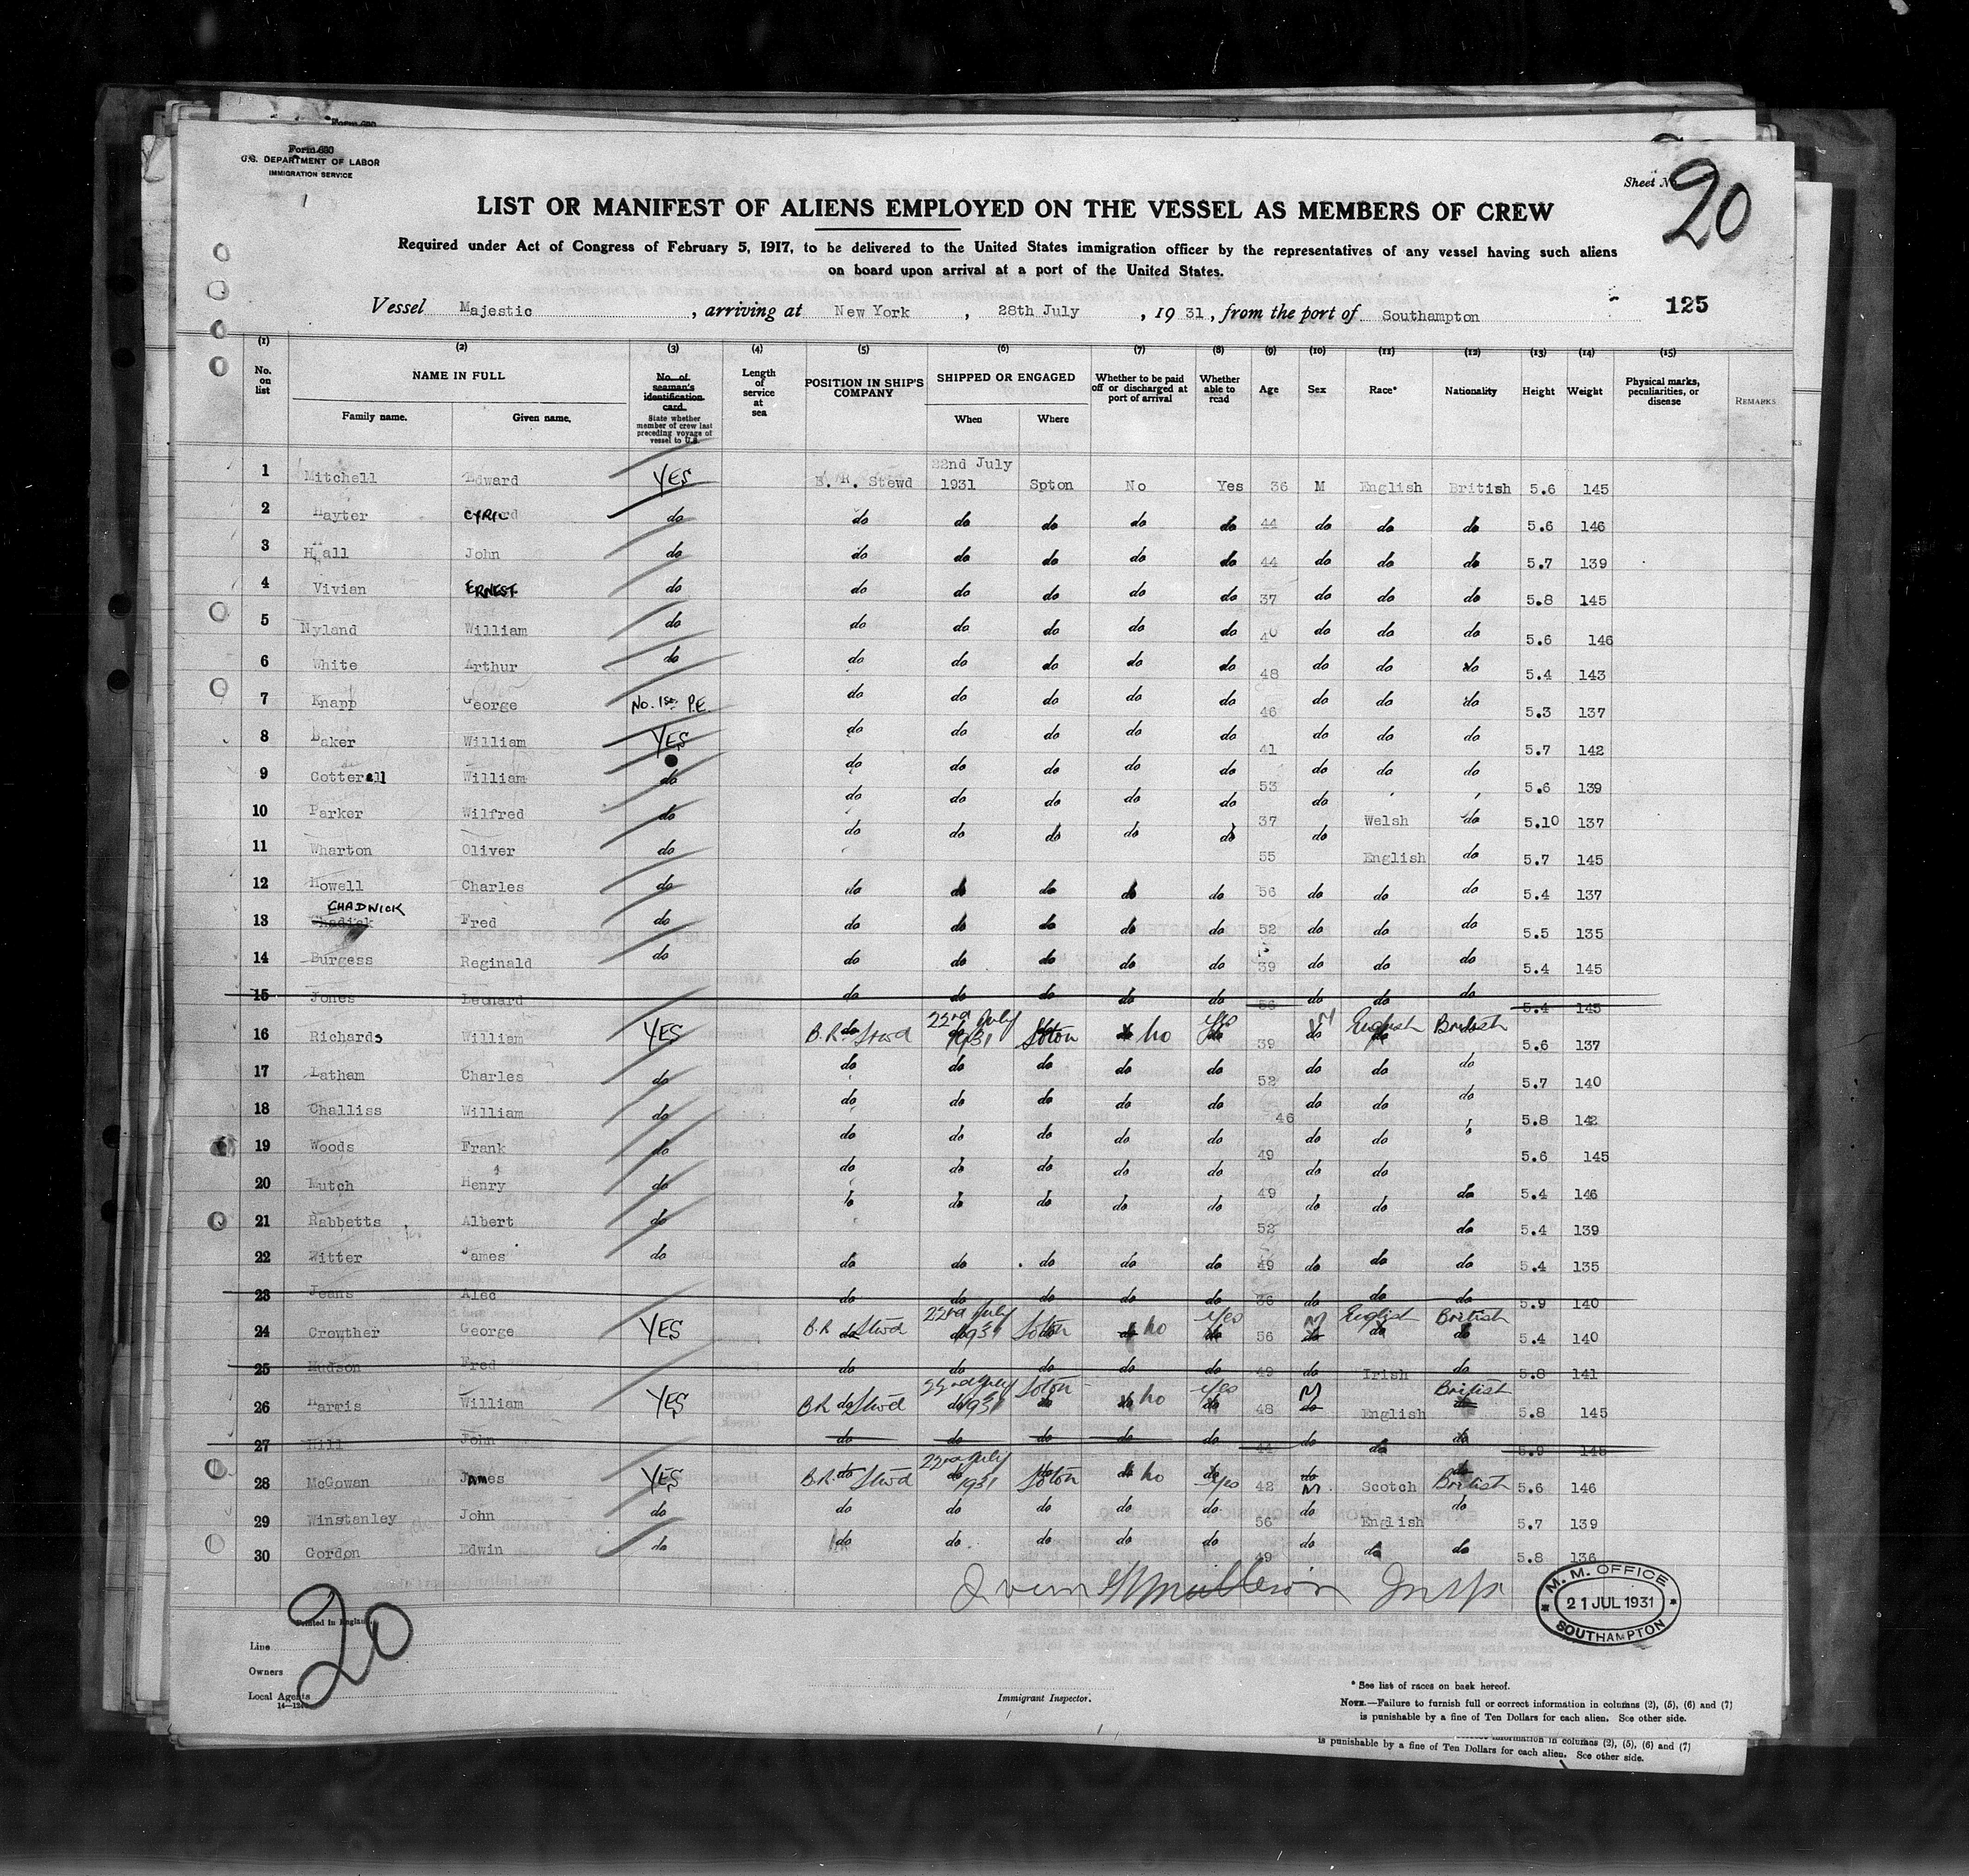 Form 680
U.S. DEPARTMENT OF LABOR
IMMIGRATION SERVICE
Sheet No. 20
LIST OR MANIFEST OF ALIENS EMPLOYED ON THE VESSEL AS MEMBERS OF CREW
Required under Act of Congress of February 5, 1917, to be delivered to the United States immigration officer by the representatives of any vessel having such aliens
on board upon arrival at a port of the United States.
Vessel Majestic, arriving at New York, 28th July, 19 31, from the port of Southampton
125
(1) (2) (3) (4) (5) (6) (7) (8) (9) (10) (11) (12) (13) (14) (15)
No. on list NAME IN FULL Family name. Given name. No. of seaman's identification card. State whether member of crew last preceding voyage of vessel to U.S. Length of service at sea POSITION IN SHIP'S COMPANY SHIPPED OR ENGAGED When Where Whether to be paid off or discharged at port of arrival Whether able to read Age Sex Race* Nationality Height Weight Physical marks, peculiarities, or disease REMARKS
1 Mitchell Edward YES B.R. Stewd 22nd July 1931 Spton No Yes 36 M English British 5.6 145
2 Hayter CYRIL do do do do do do 44 do do do 5.6 146
3 Hall John do do do do do do 44 do do do 5.7 139
4 Vivian ERNEST do do do do do do 37 do do do 5.8 145
5 Nyland William do do do do do do 40 do do do 5.6 146
6 White Arthur do do do do do do 48 do do do 5.4 143
7 Knapp George No. 1st P.E. do do do do do 46 do do do 5.3 137
8 Baker William YES do do do do do 41 do do do 5.7 142
9 Cotterall William do do do do do do 53 do do do 5.6 139
10 Parker Wilfred do do do do do do 37 do Welsh do 5.10 137
11 Wharton Oliver do do do do do do 55 do English do 5.7 145
12 Howell Charles do do do do do do 56 do do do 5.4 137
CHADWICK
13 Chadick Fred do do do do do do 52 do do do 5.5 135
14 Burgess Reginald do do do do do do 39 do do do 5.4 145
15 Jones Leonard do do do do do 56 do do do 5.4 145
16 Richards William YES B.R. do Stwd 22nd July 1931 Soton No Yes 39 M English British 5.6 137
17 Latham Charles do do do do do do 52 do do do 5.7 140
18 Challiss William do do do do do do 46 do do do 5.8 142
19 Woods Frank do do do do do do 49 do do 5.6 145
20 Lutch Henry do do do do do do 49 do do do 5.4 146
21 Rabbetts Albert do do do do do do 52 do do do 5.4 139
22 Witter James do do do do do do 49 do do do 5.4 135
23 Jeans Alec do do do do do 36 do do do 5.9 140
24 Crowther George YES B.R do Stwd 22nd July 1931 Soton do No Yes do 56 M do English do British do 5.4 140
25 Hudson Fred do do do do do 49 do Irish do 5.8 141
26 Harris William YES B.R do Stwd 22nd July do 1931 Soton do No Yes do 48 M do English British 5.8 145
27 Hill John do do do do do 44 do do do 5.9 145
28 McGowan James YES B.R. do Stwd 22nd July 1931 Soton do No do Yes 42 do M Scotch do British 5.6 146
29 Winstanley John do do do do do do 56 do English do 5.7 139
30 Gordon Edwin do do do do do do 49 do do do 5.8 136
M. M. OFFICE
21 JUL 1931
SOUTHAMPTON
20
Printed in England.
Line
Owners
Local Agents
Immigrant Inspector.
* See list of races on back hereof.
NOTE.—Failure to furnish full or correct information in columns (2), (5), (6) and (7)
is punishable by a fine of Ten Dollars for each alien. See other side.
information in columns (2), (5), (6) and (7)
is punishable by a fine of Ten Dollars for each alien. See other side.